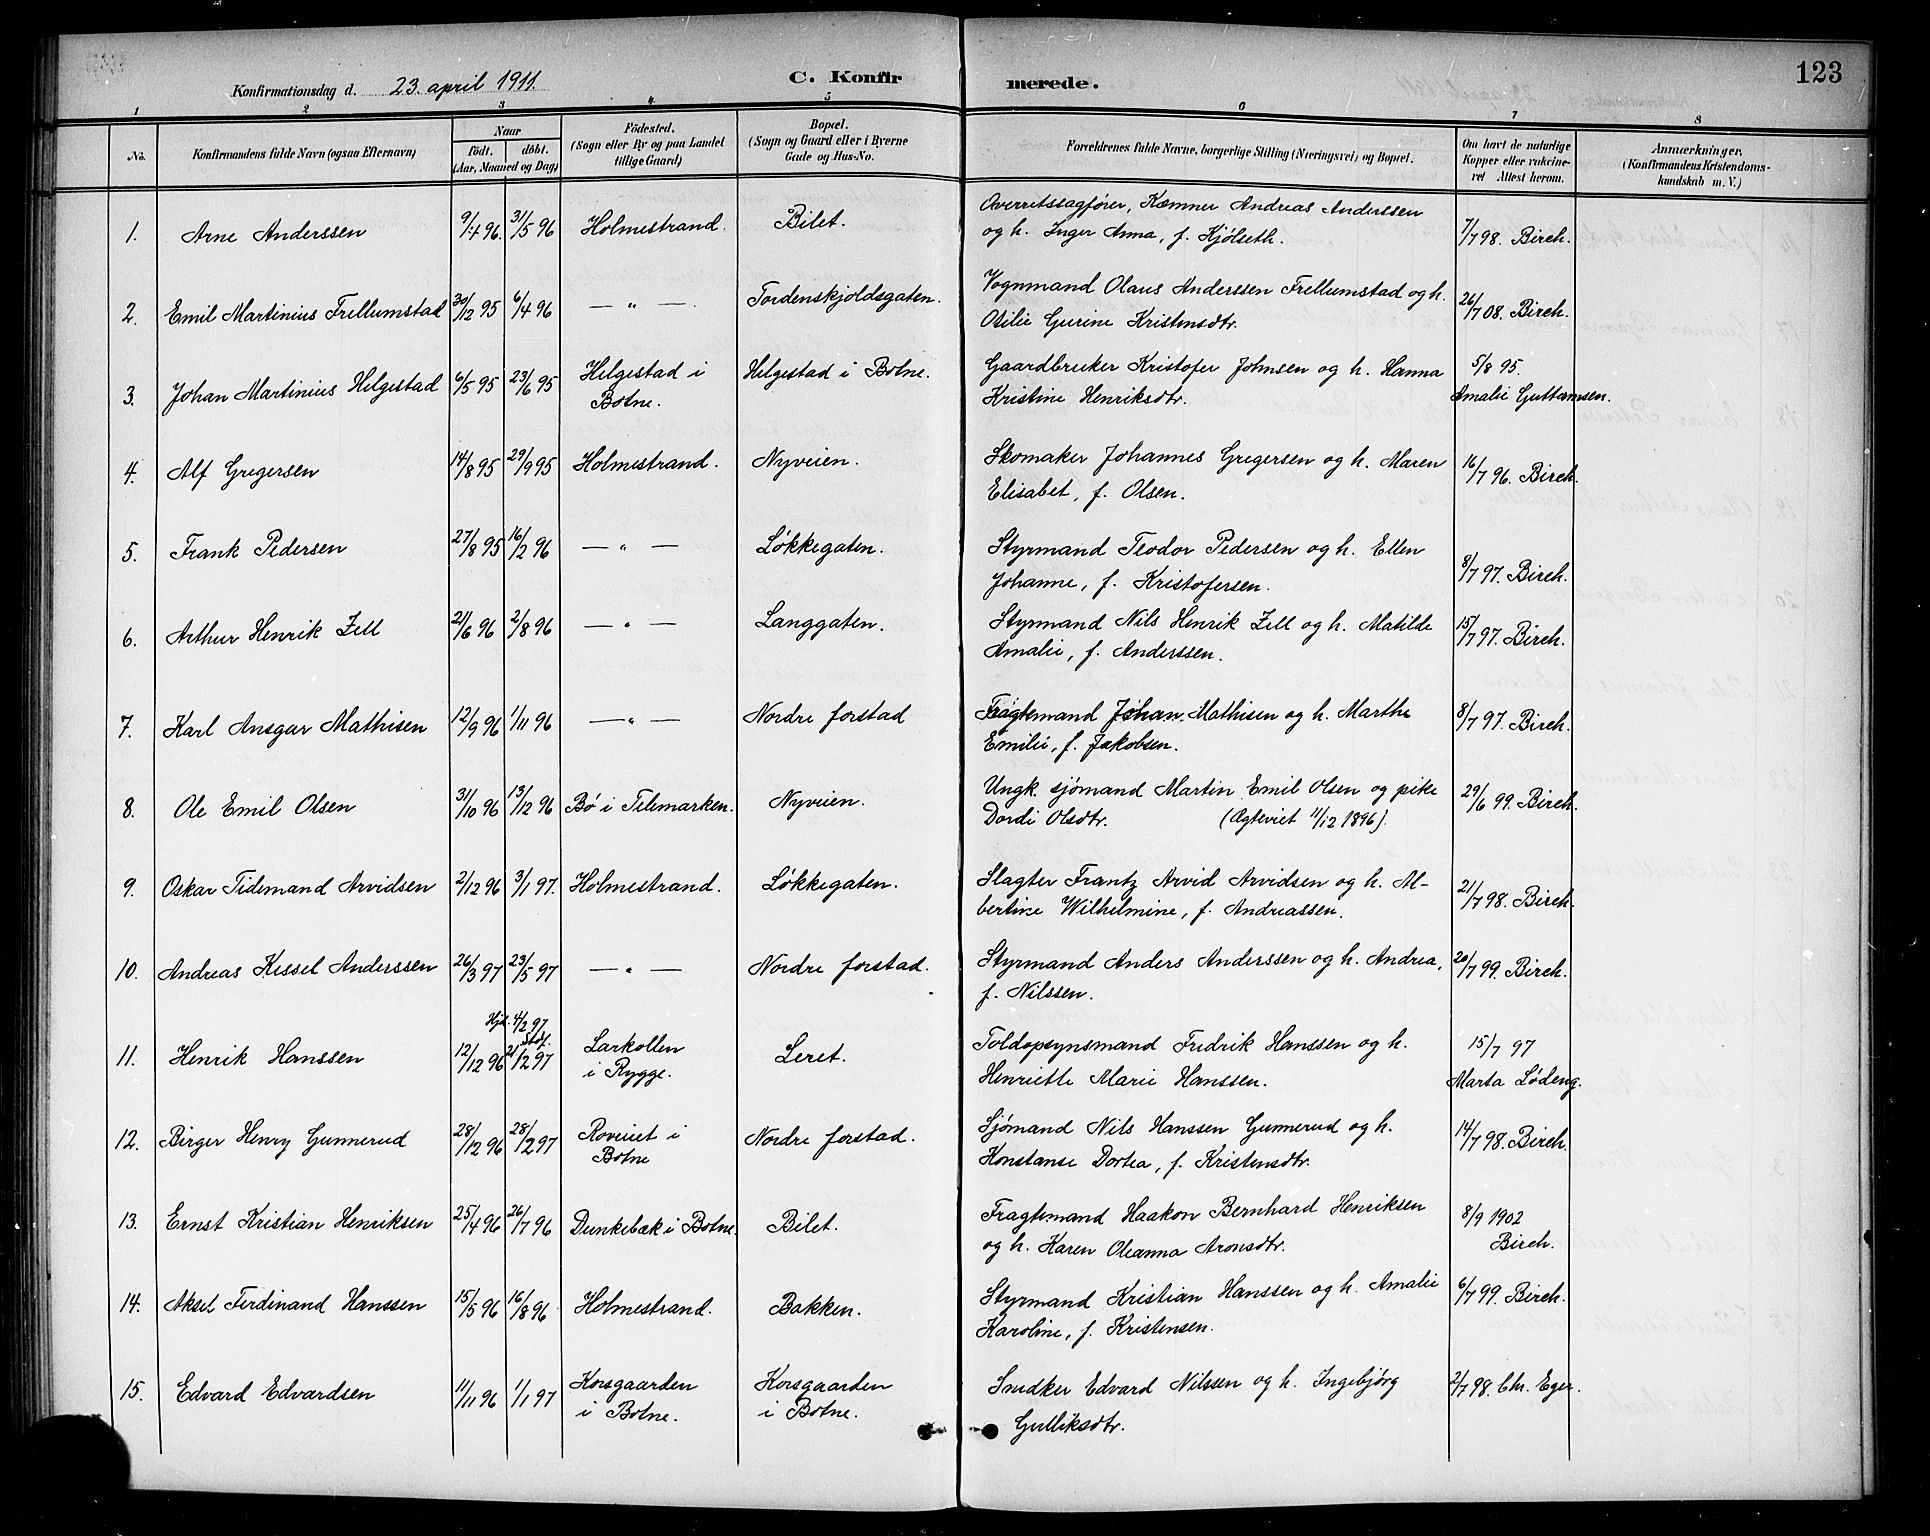 Konfirmationsdag d. 23. april 1911. C. Konfirmerede. 123
1 2 3 4 5 6 7 8
No. Konfirmandens fulde Navn (ogsaa Efternavn) Naar født. døbt. (Aar, Maaned og Dag) Fødested. (Sogn eller By og paa Landet tillige Gaard) Bopæl. (Sogn og Gaard eller i Byerne Gade og Hus-No. Forældrenes fulde Navne, borgerlige Stilling (Næringsvei) og Bopæl. Om havt de naturlige Kopper eller vakcineret Attest herom. Anmærkninger. (Konfirmandens Kristendomskundskab m. V.)
1. Arne Anderssen 9/4 96. 31/5 96 Holmestrand. Bilet. Overretssagfører, Kæmner Andreas Anderssen
og h. Inger Anna, f. Kjølseth. 7/7 98. Birch.
2. Emil Martinius Frellumstad 30/12 95 6/4 96 — " — Tordenskjoldsgaten. Vognmand Olaus Anderssen Frellumstad og h.
Otilie Gurine Kristensdtr. 26/7 08. Birch.
3. Johan Martinius Helgestad 6/5 95 23/6 95 Helgestad i Botne. Helgestad i Botne. Gaardbruker Kristofer Johnsen og h. Hanna
Kristine Henriksdtr. 5/8 95. Amalie Guttormsen.
4. Alf Gregersen 14/8 95 29/9 95 Holmestrand. Nyveien. Skomaker Johannes Gregersen og h. Maren
Elisabet, f. Olsen. 16/7 96. Birch.
5. Frank Pedersen 27/8 95 16/2 96 — " — Løkkegaten. Styrmand Teodor Pedersen og h. Ellen
Johanne, f. Kristofersen. 8/7 97. Birch.
6. Arthur Henrik Zell 21/6 96 2/8 96 — " — Langgaten. Styrmand Nils Henrik Zell og h. Matilde
Amalie, f. Anderssen. 15/7 97. Birch.
7. Karl Ansgar Mathisen 12/9 96 1/11 96 — " — Nordre forstad Fragtemand Johan Mathisen og h. Marthe
Emilie, f. Jakobsen. 8/7 97. Birch.
8. Ole Emil Olsen 31/10 96 13/12 96 Bø i Telemarken. Nyveien. Ungk. sjømand Martin Emil Olsen og pike
Dordi Olsdtr. (Ægteviet 11/12 1896). 29/6 99. Birch.
9. Oskar Tidemand Arvidsen 2/12 96 3/1 97. Holmestrand. Løkkegaten. Slagter Frantz Arvid Arvidsen og h. Al-
bertine Wilhelmine, f. Andreassen. 21/7 98. Birch.
10. Andreas Kessel Anderssen 26/3 97 23/5 97 — " — Nordre forstad. Styrmand Anders Anderssen og h. Andrea,
f. Nilssen. 20/7 99. Birch.
11. Henrik Hanssen 12/12 96 Hjd. 4/2 97 Stdf. 21/2 97 Larkollen i Rygge. Leret. Toldopsynsmand Fredrik Hanssen og h.
Henriette Marie Hanssen. 15/7 97 Marta Lødeng.
12. Birger Henry Gunnerud 28/12 96 28/2 97 Roveiet i Botne Nordre forstad. Sjømand Nils Hanssen Gunnerud og h.
Konstanse Dortea, f. Kristensdtr. 14/7 98. Birch.
13. Ernst Kristian Henriksen 25/4 96 26/7 96 Dunkebæk i Botne. Bilet. Fragtemand Haakon Bernhard Henriksen
og h. Karen Oleanna Aronsdtr. 8/9 1902 Birch.
14. Aksel Ferdinand Hanssen 15/5 96 16/8 96 Holmestrand. Bakken. Styrmand Kristian Hanssen og h. Amalie
Karoline, f. Kristensen. 6/7 99. Birch.
15. Edvard Edvardsen 11/11 96 1/1 97 Korsgaarden i Botne. Korsgaarden i Botne. Snedker Edvard Nilssen og h. Ingebjørg
Gulliksdtr. 2/7 98. Chr. Eger.